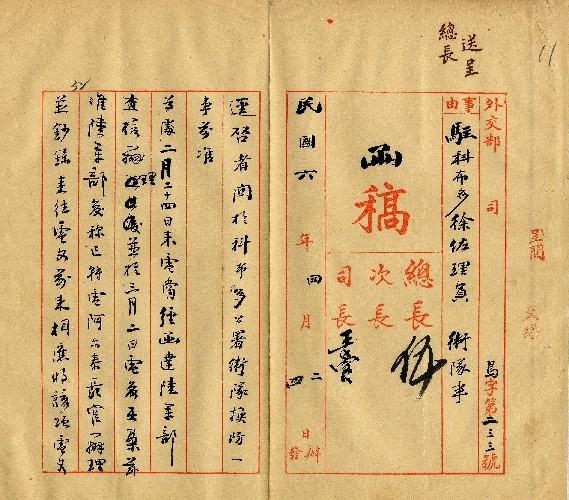 送呈
總長
11
外交部 司 烏字第二三三號
事由
駐科布多徐佐理員 衛隊事
函稿
總長 伍
次長
司長
民國六年四月二日辦
四 發
逕啓者關於科布多公署衛隊換防一
事前准
貴處二月二十四日來電當經函達陸軍部
查核辦理並於三月二日電復在案茲
准陸軍部復稱已將電阿爾泰長官辦理
並鈔錄來往電文前來相應將該項電文